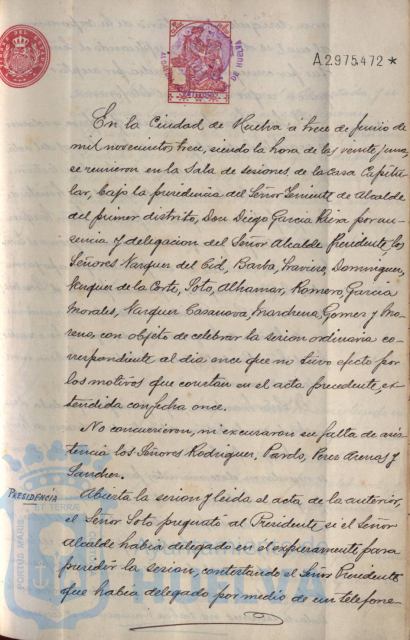 A2975472*
En la Ciudad de Huelva á trece de Junio de
mil novecientos trece, siendo la hora de las veintiuna,
se reunieron en la Sala de sesiones de la casa Capitu-
lar, bajo la presidencia del Señor Teniente de Alcalde
del primer distrito, Don Diego Garcia Riera por au-
sencia y delegacion del Señor Alcalde Presidente, los
Señores Vazquez del Cid, Barba, Dominguez,
Vazquez de la Corte, Soto, Alhamar, Romero, Garcia
Morales, Vazquez Casanova, Marchena Gomez y Mo-
reno, con objeto de celebrar la sesion ordinaria co-
rrespondiente al dia once que no tuvo efecto por
los motivos que constan en el acta precedente, ex-
tendida con fecha once.
No concurrieron, ni excusaron su falta de asis-
tencia los Señores Rodriguez, Pardo, Perez Arenas y
Sanchez.
PRESIDENCIA
Abierta la sesion y leida el acta de la anterior,
el Señor Soto preguntó al Presidente si el Señor
Alcalde habia delegado en el expresamente para
presidir la sesion, contestando el Señor Presidente
que habia delegado por medio de un telefone-
PORTUS MARIS
ET TERRÆ
DE HUELVA